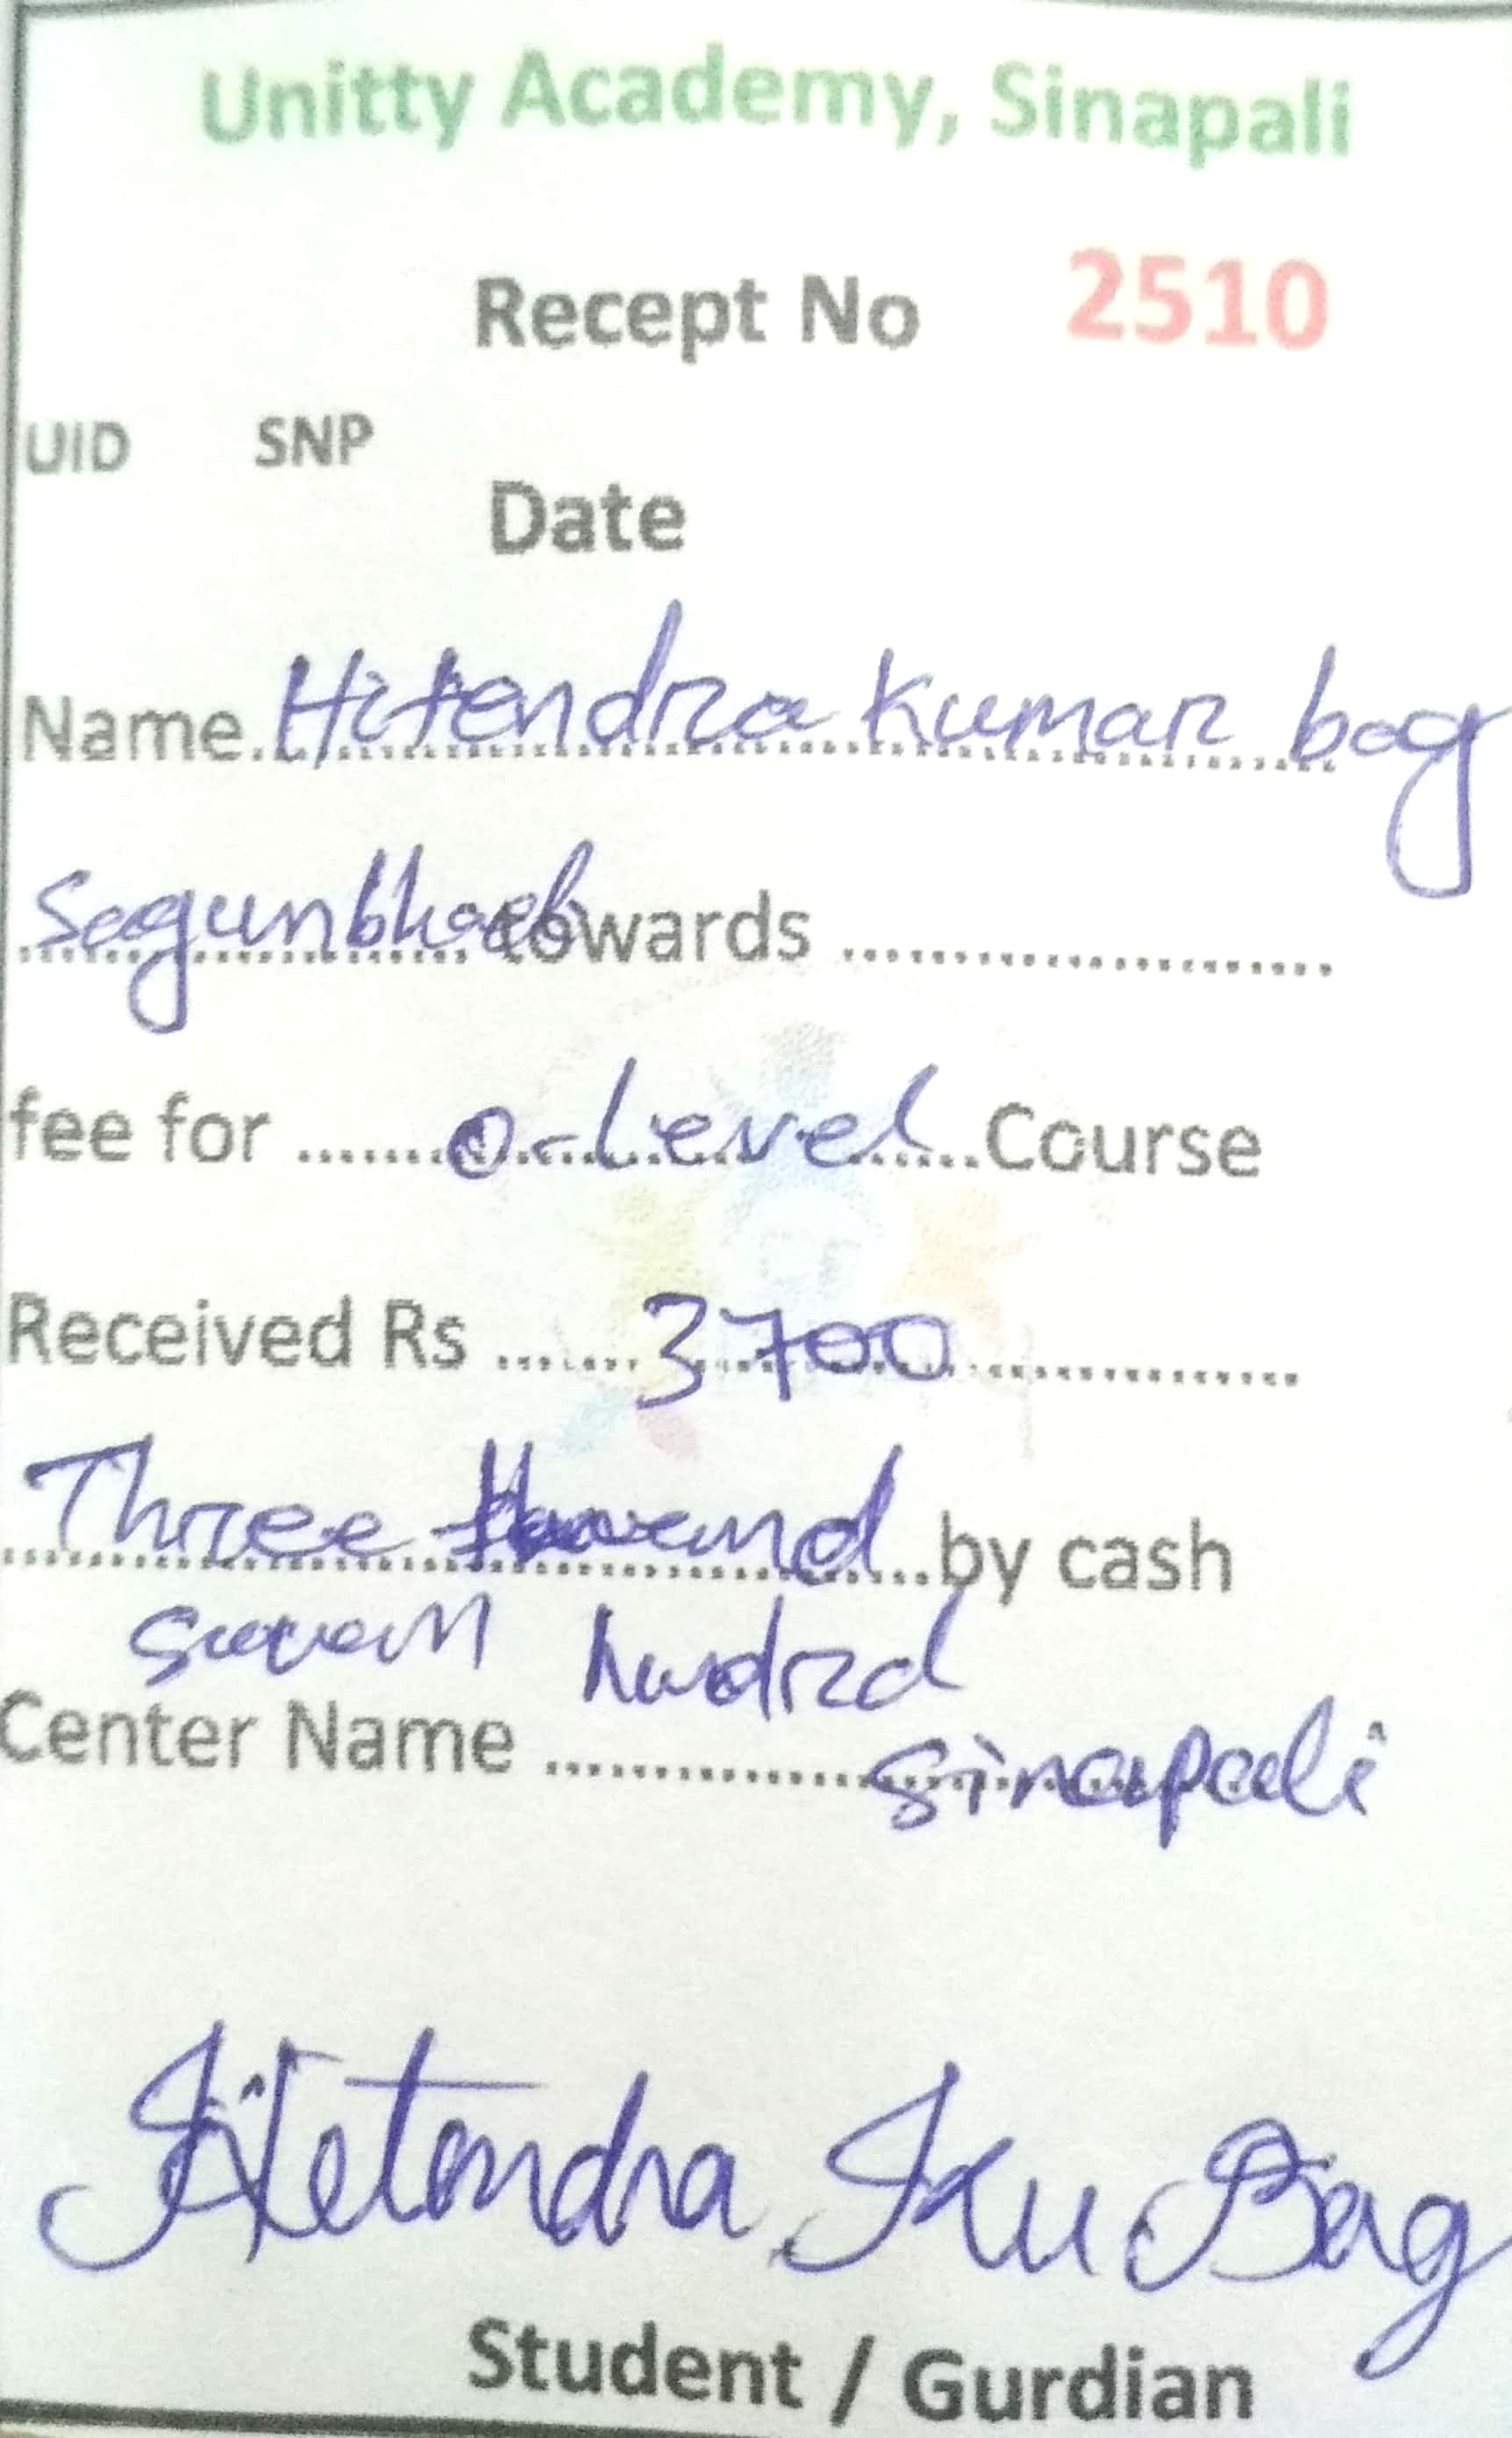 Unitty Academy, Sinapali
Recept No 2510
UID SNP
Date
Name. Hitendra Kumar bag
Sagunbhadi towards ........................
fee for ........ O-Level ...... Course
Received Rs ....... 3700 ................
Three thousand ... by cash
seven hundred
Center Name ................ Sinapali
Hitendra Ku. Bag
Student / Gurdian